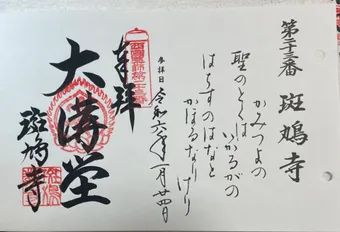 斑鳩寺
かみつよの
聖のとくは
いかるがの
はちすのはなと
かほるなりけり
参拝日 令和六年一月廿四日
奉拝
大講堂
斑鳩寺